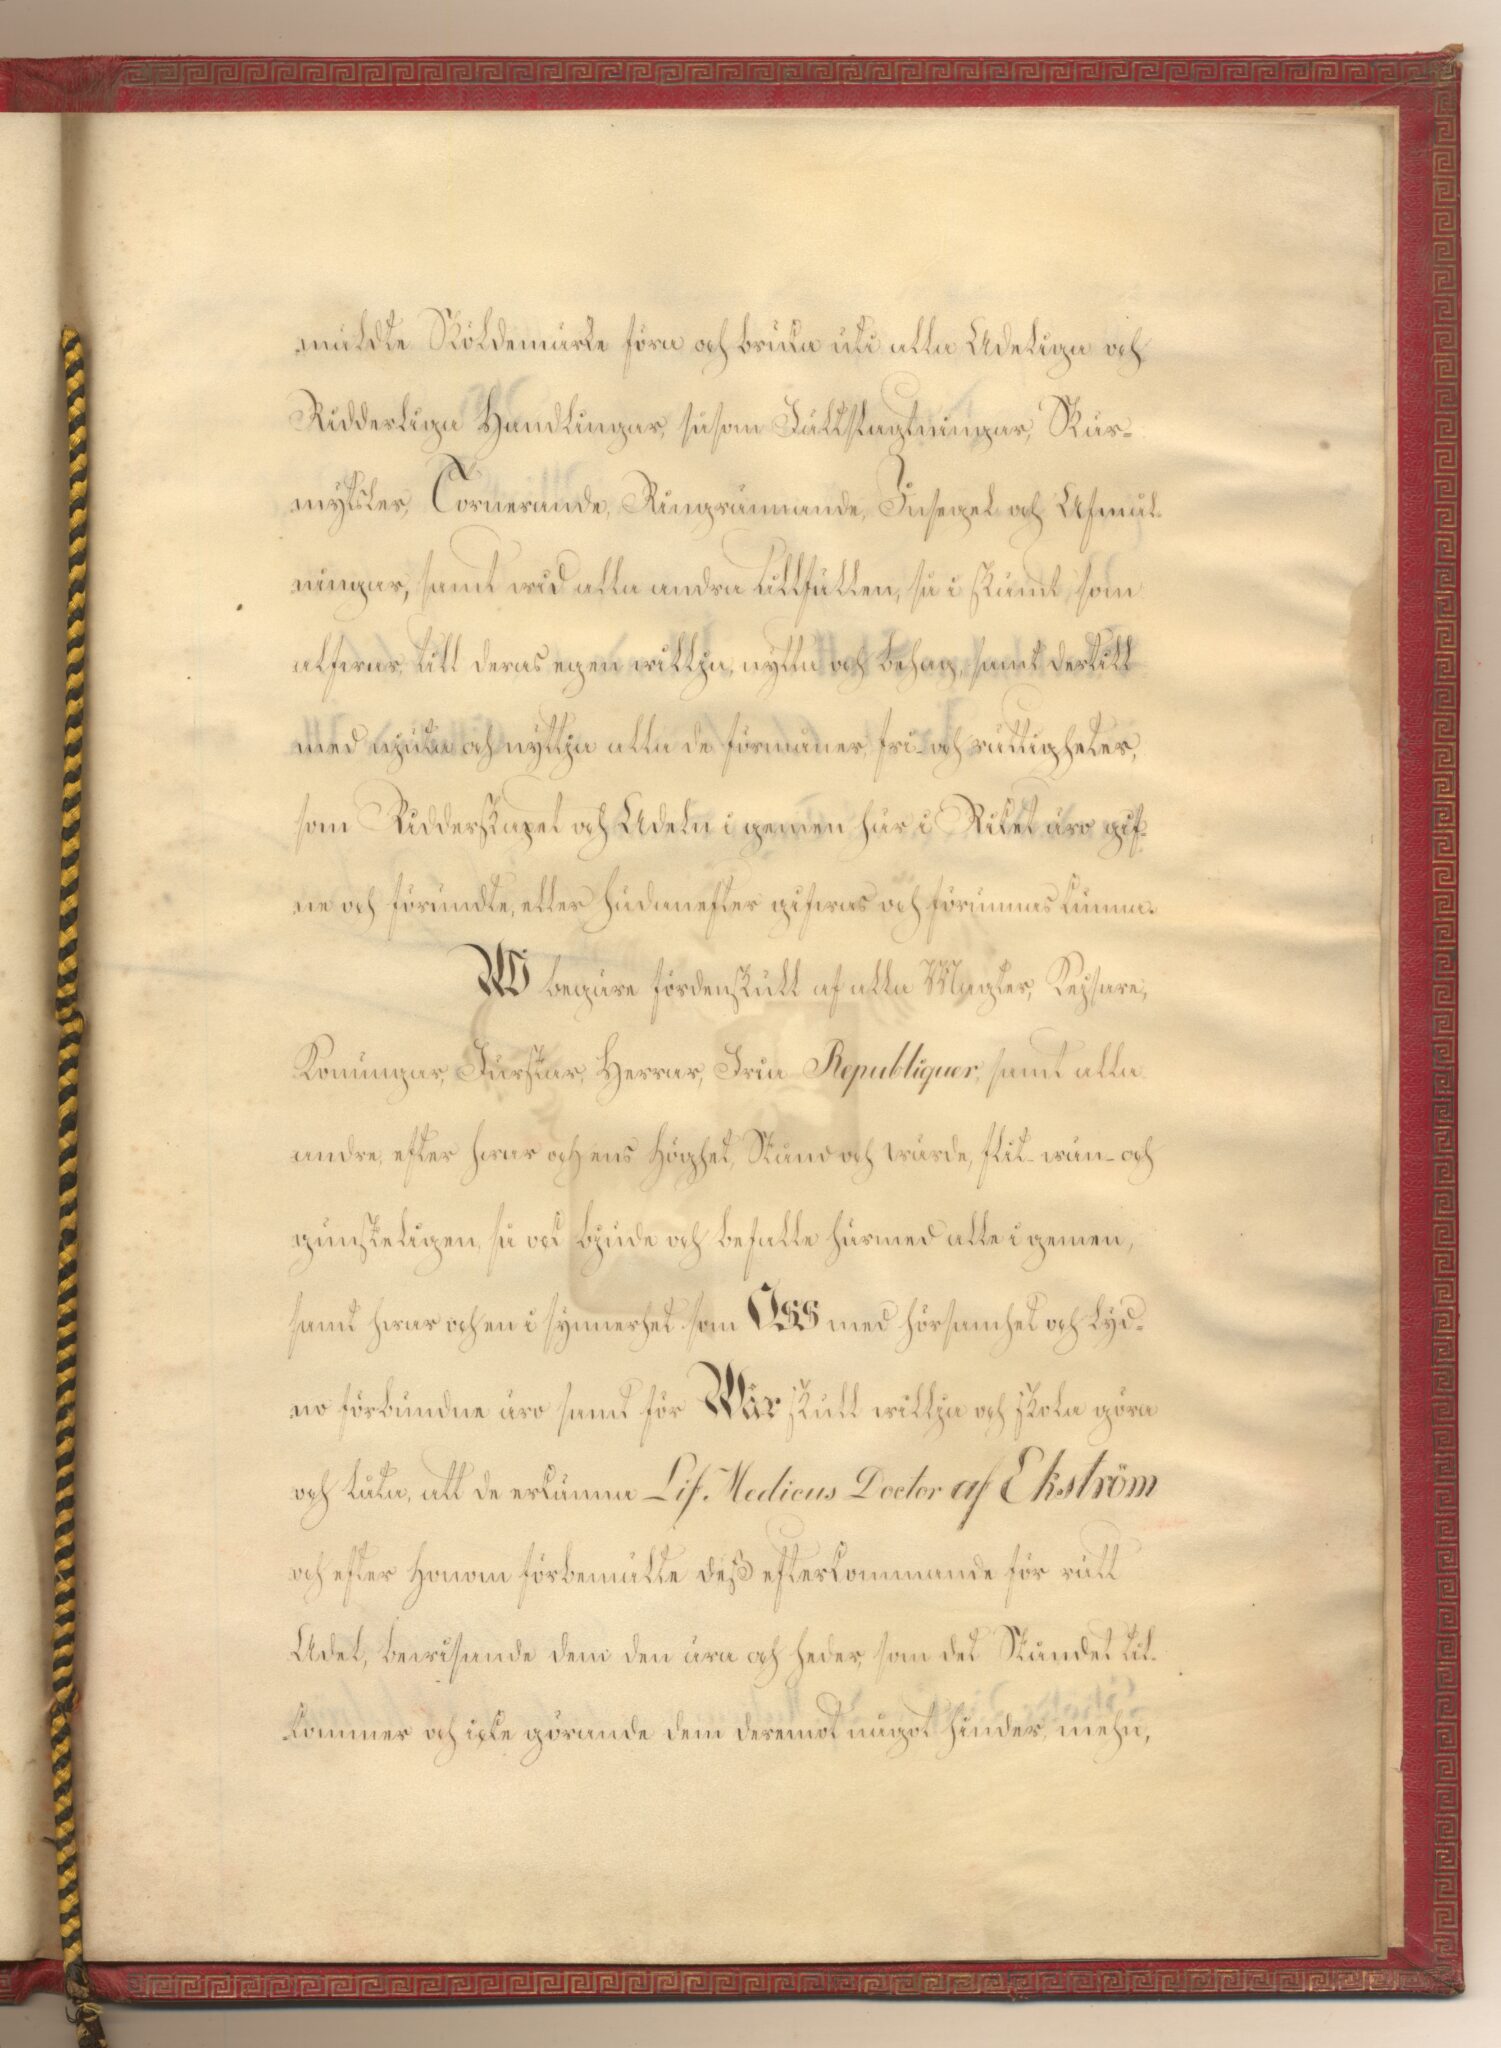 mäldte Sköldemärke föra och bruka uti alla Adeliga och
Ridderliga Handlingar, såsom Fältslagtningar, Skär-
mytsler, Tornerande, Ringrännande, Insegel och Afmål-
ningar, samt wid alla andra tillfällen, så i skämt som
alfwar, till deras egen willja, nytta och behag, samt dertill
med njuta och nyttja alla de förmåner, fri- och rättigheter,
som Ridderskapet och Adeln i gemen här i Riket äro gif-
ne och förundte, eller hädanefter gifwas och förunnas kunna.
Wi begäre fördenskull af alla Magter, Kejsare,
Konungar, Furstar, Herrar, Fria Republiquer, samt alla
andre, efter hwar och ens Höghet, Stånd och wärde, flit- wän- och
gunsteligen, så ock bjude och befalle härmed alle i gemen,
samt hwar och en i synnerhet som Oss med hörsamhet och lyd-
no förbundne äro samt för Wår skull willja och skola göra
och låta, att de erkänna Lif-Medicus Doctor af Ekström
och efter Honom förbemälte dess efterkommande för rätt
Adel, bewisande dem den ära och heder, som det Ståndet till-
kommer och icke görande dem deremot något hinder, mehn,